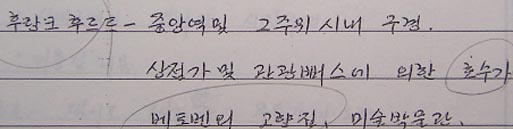 후랑크 후르트 - 중앙역 및 그 주위 시내 구경.
상점가 및 관광뻐스에 의한 호수가
베토벤의 고향집, 미술박물관,